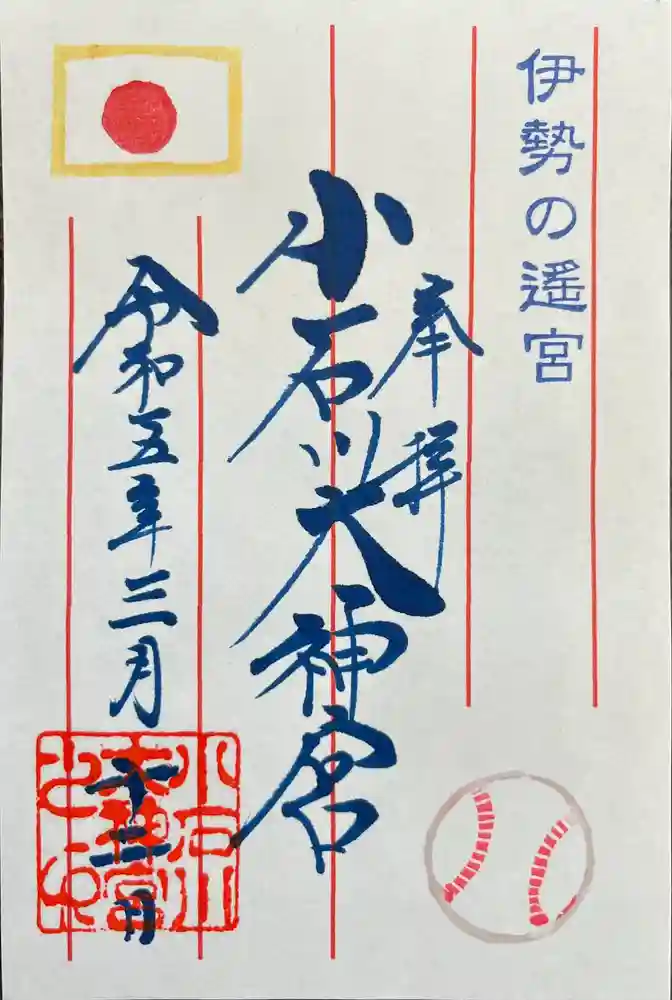 伊勢の遥宮
奉拝
小石川大神宮
令和五年三月
十二日
小石川
大神宮
之印